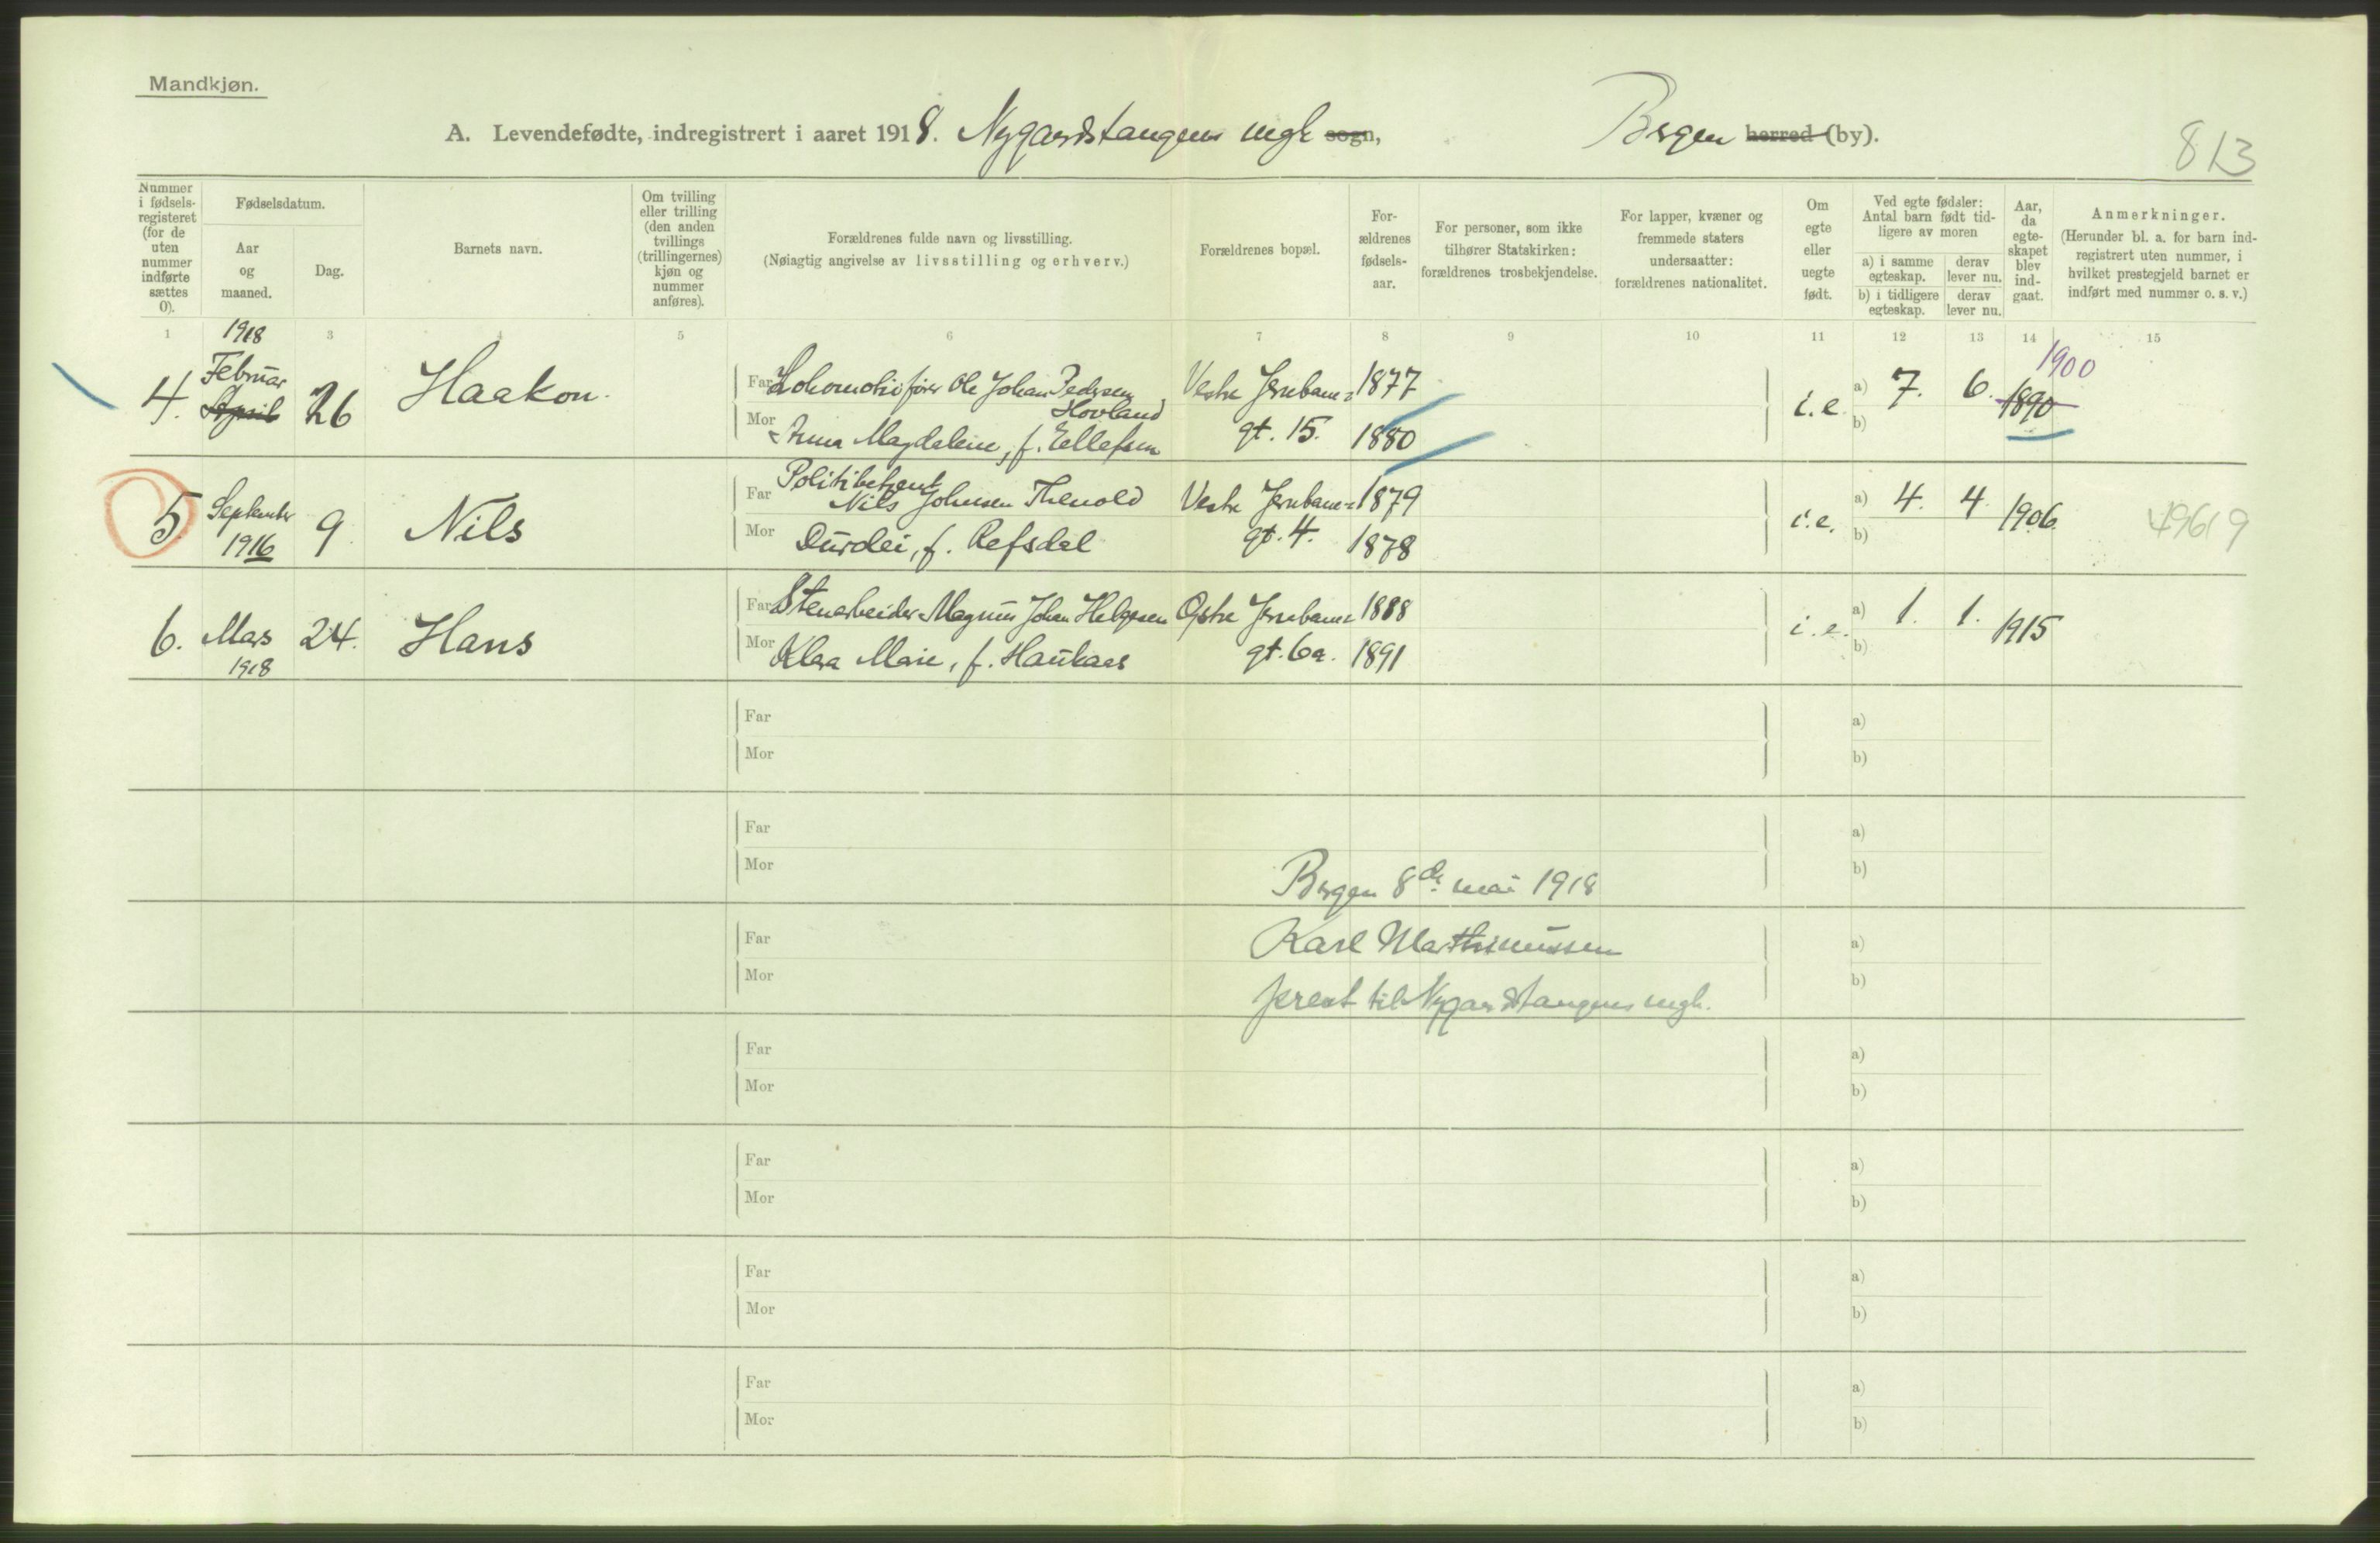 Mandkjøn.
A. Levendefødte, indregistrert i aaret 1918. Nygaardstangens mgh sogn, Bergen herred (by).
813
Nummer i fødsels-registeret (for de uten nummer indførte sættes 0).
Fødselsdatum.
Aar og maaned.
Dag.
Barnets navn.
Om tvilling eller trilling (den anden tvillings (trillingernes) kjøn og nummer anføres).
Forældrenes fulde navn og livsstilling.
(Nøiagtig angivelse av livsstilling og erhverv.)
Forældrenes bopæl.
For-ældrenes fødsels-aar.
For personer, som ikke tilhører Statskirken: forældrenes trosbekjendelse.
For lapper, kvæner og fremmede staters undersaatter: forældrenes nationalitet.
Om egte eller uegte født.
Ved egte fødsler: Antal barn født tid-ligere av moren
a) i samme egteskap.
derav lever nu.
b) i tidligere egteskap.
derav lever nu.
Aar, da egte-skapet blev ind-gaat.
Anmerkninger.
(Herunder bl. a. for barn ind-registrert uten nummer, i hvilket prestegjeld barnet er indført med nummer o. s. v.)
1 2 3 4 5 6 7 8 9 10 11 12 13 14 15
1918
4. Februar April 26 Haakon. Far Lokomotivfører Ole Johan Pedersen Hovland Vestre Jernbane= 1877 i.e. a) 7. 6. 1890 1900
Mor Anna Magdalene, f. Ellefsen gt. 15. 1880 b)
5. September 1916 9. Nils Far Politibetjent Nils Johnsen Thenold Vestre Jernbane= 1879 i.e. a) 4. 4. 1906. 49619
Mor Durdei, f. Refsdal gt. 4. 1878 b)
6. Mars 1918 24. Hans Far Stenarbeider Magnus Johan Helgesen Østre Jernbane= 1888 i.e. a) 1. 1. 1915
Mor Klara Marie, f. Haukaas gt. 6a. 1891 b)
Far a)
Mor b)
Far a)
Mor b)
Bergen 8de mai 1918
Far a)
Karl Marthinussen
Mor b)
prest til Nygaardstangens mgh.
Far a)
Mor b)
Far a)
Mor b)
Far a)
Mor b)
Far a)
Mor b)